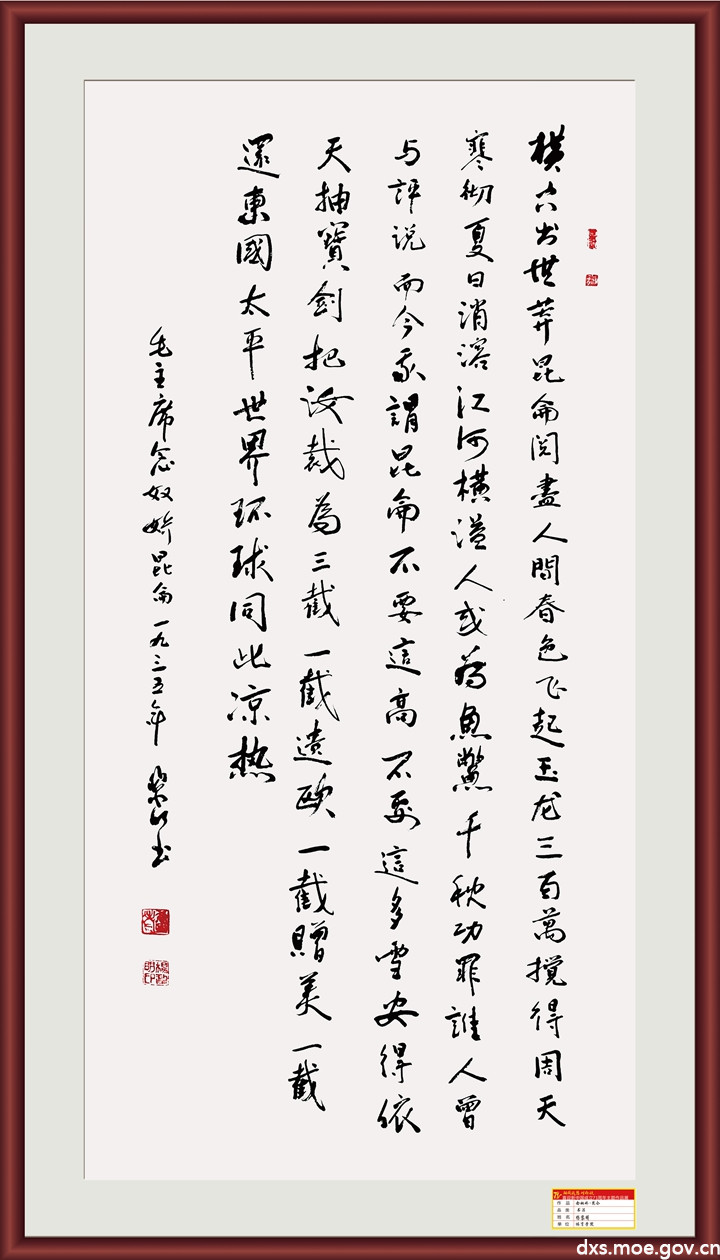 横空出世莽昆侖阅盡人間春色飞起玉龙三百萬搅得周天
寒彻夏日消溶江河横溢人或为魚鱉千秋功罪誰人曾
与評说而今我謂昆侖不要這高不要這多雪安得倚
天抽寶剑把汝裁為三截一截遗欧一截赠美一截
還東國太平世界环球同此凉热
毛主席念奴娇昆侖一九三五年
书
dxs.moe.gov.cn